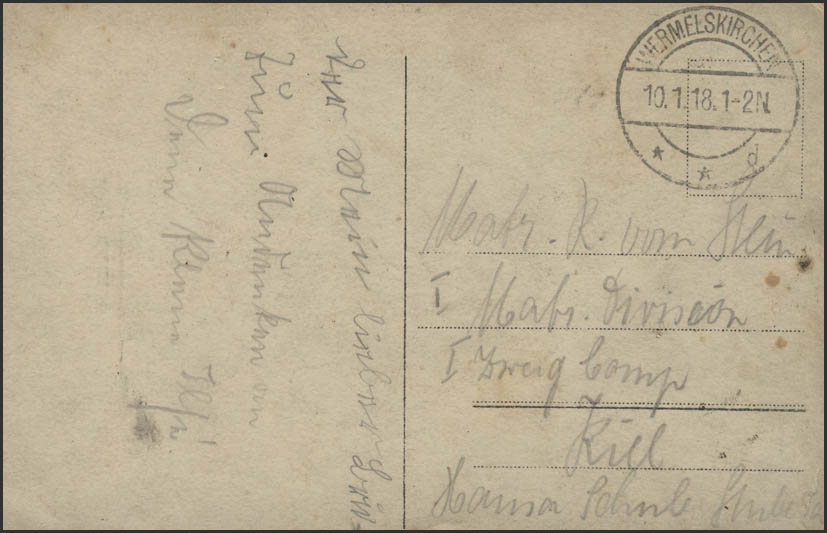 WERMELSKIRCHEN
10.1.18.1-2N.
* * d
Matr. R. vom Stein
I Matr. Division
I Zweig Comp
Kiel
Hansa Schule Stube
Mein lieber
Zum Andenken an
Deine Kleine